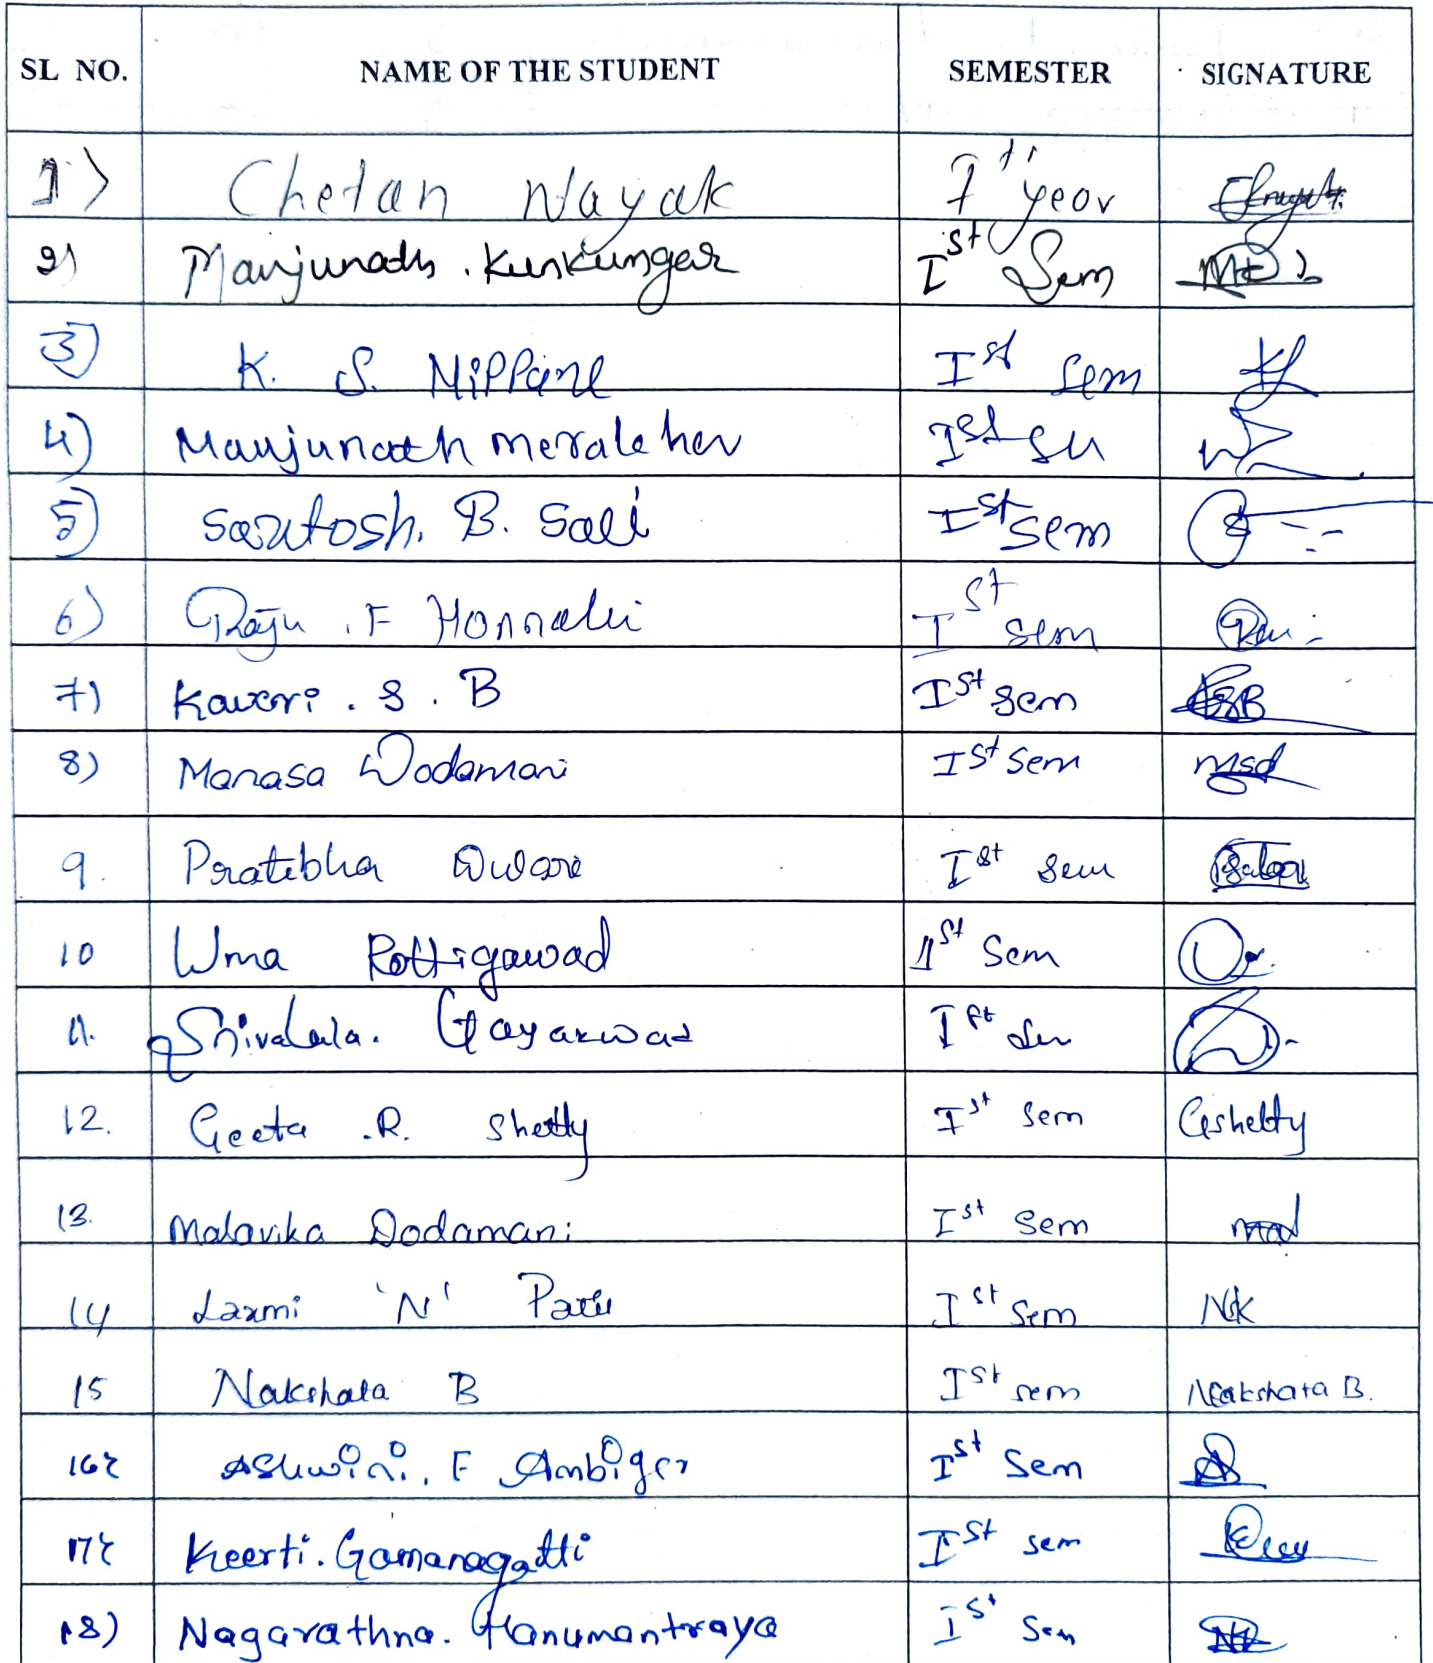 SL NO. NAME OF THE STUDENT SEMESTER SIGNATURE
1) Chetan Nayak I year
2) Manjunath . Kunkungar Ist Sem
3) K. S. Nippani Ist sem
4) Manjunath Ist
5) Santosh. B. Sali Ist sem
6) Raju . F Honnalli Ist sem
7) Kaveri . S . B Ist sem KSB
8) Manasa Dodamani Ist Sem msd
9. Pratibha Ist Sem
10 Uma Rottigawad 1st Sem
11. Ist
12. Geeta .R. Shetty Ist Sem Gshetty
13. Malavika Dodamani Ist Sem mad
14 Laxmi 'N' Ist Sem NK
15 Nakshata B Ist sem Nakshata B.
16 Ashwini. F Ambiger Ist Sem
17 Keerti. Gamanagatti Ist sem
18) Nagarathna. Hanumantraya Ist Sem